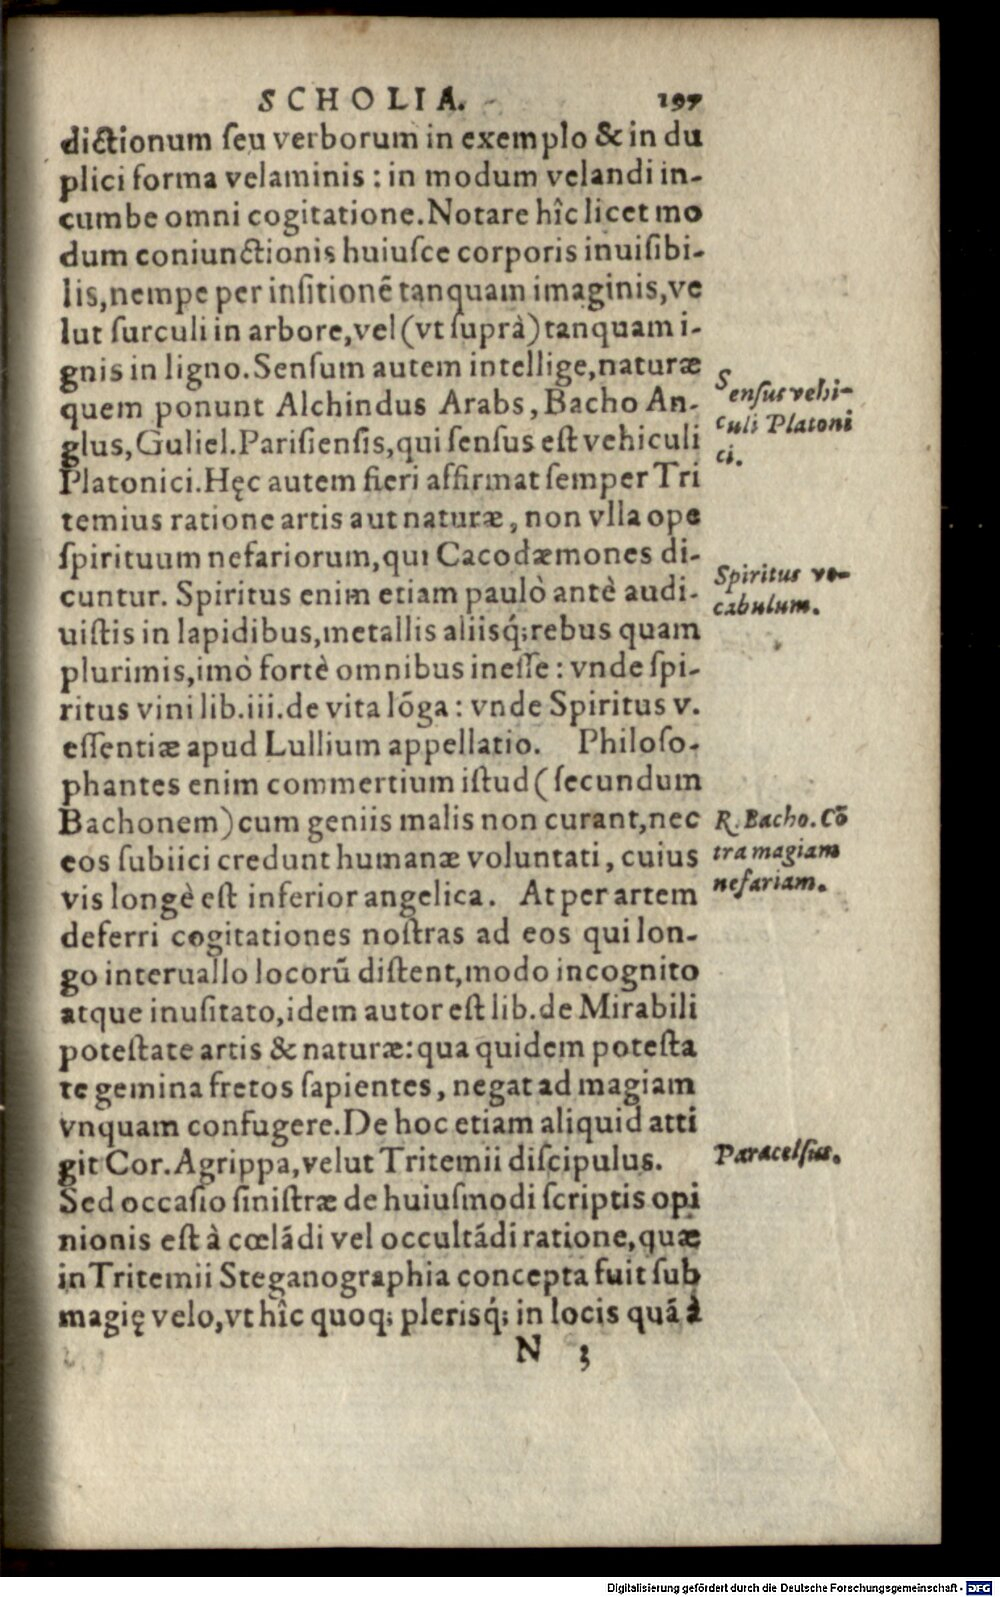 SCHOLIA. 197
dictionum ſeu verborum in exemplo & in du
plici forma velaminis : in modum velandi in-
cumbe omni cogitatione. Notare hîc licet mo
dum coniunctionis huiuſce corporis inuiſibi-
lis, nempe per inſitionē tanquam imaginis, ve
lut ſurculi in arbore, vel (vt ſuprà) tanquam i-
gnis in ligno. Senſum autem intellige, naturæ
quem ponunt Alchindus Arabs, Bacho An-
glus, Guliel. Pariſienſis, qui ſenſus eſt vehiculi
Platonici. Hęc autem fieri affirmat ſemper Tri
temius ratione artis aut naturæ, non vlla ope
ſpirituum nefariorum, qui Cacodæmones di-
cuntur. Spiritus enim etiam paulò antè audi-
uiſtis in lapidibus, metallis aliisq́; rebus quam
plurimis, imò fortè omnibus ineſſe : vnde ſpi-
ritus vini lib. iii. de vita lōga : vnde Spiritus v.
eſſentiæ apud Lullium appellatio. Philoſo-
phantes enim commertium iſtud (ſecundum
Bachonem) cum geniis malis non curant, nec
eos ſubiici credunt humanæ voluntati, cuius
vis longè eſt inferior angelica. At per artem
deferri cogitationes noſtras ad eos qui lon-
go interuallo locorū diſtent, modo incognito
atque inuſitato, idem autor eſt lib. de Mirabili
poteſtate artis & naturæ: qua quidem poteſta
te gemina fretos ſapientes, negat ad magiam
vnquam confugere. De hoc etiam aliquid atti
git Cor. Agrippa, velut Tritemii diſcipulus.
Sed occaſio ſiniſtræ de huiuſmodi ſcriptis opi
nionis eſt à cœlādi vel occultādi ratione, quæ
in Tritemii Steganographia concepta fuit ſub
magię velo, vt hîc quoq; plerisq́; in locis quā à
N 3
Senſus vehi-
culi Platoni
ci.
Spiritus vo-
cabulum.
R. Bacho. Cō
tra magiam
nefariam.
Paracelſus.
Digitalisierung gefördert durch die Deutsche Forschungsgemeinschaft - DFG